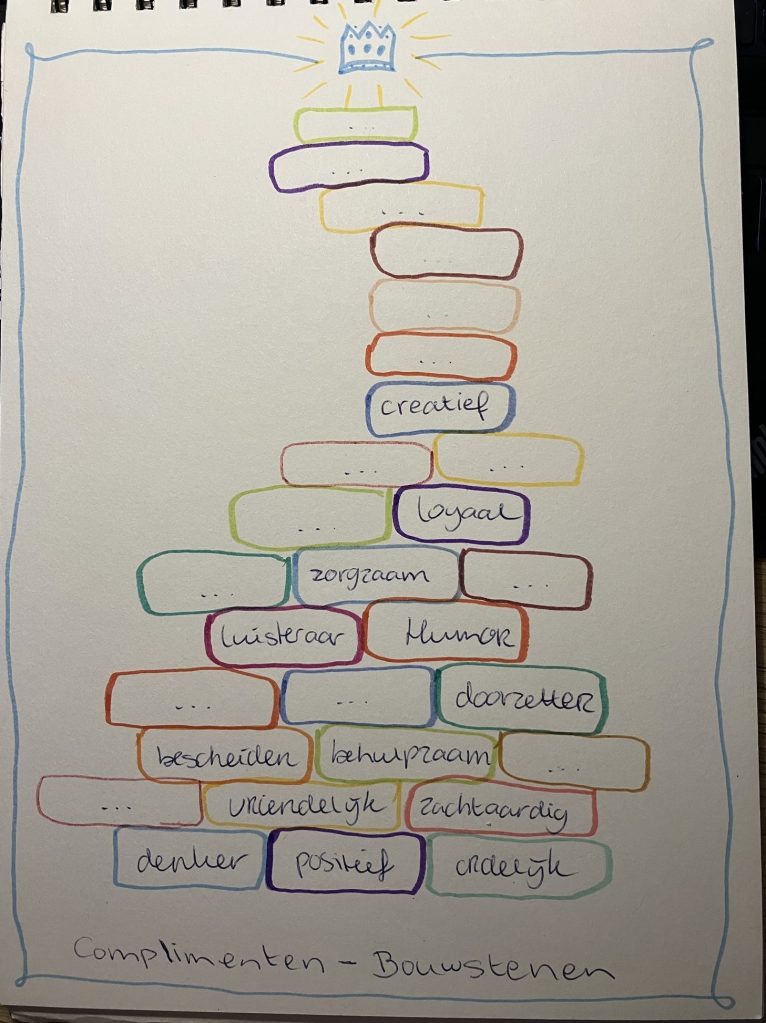 ...
...
...
...
...
...
creatief
... ...
... loyaal
... zorgzaam ...
luisteraar Humor
... ... doorzetter
bescheiden behulpzaam ...
... vriendelijk zachtaardig
denker positief ordelijk
Complimenten - Bouwstenen